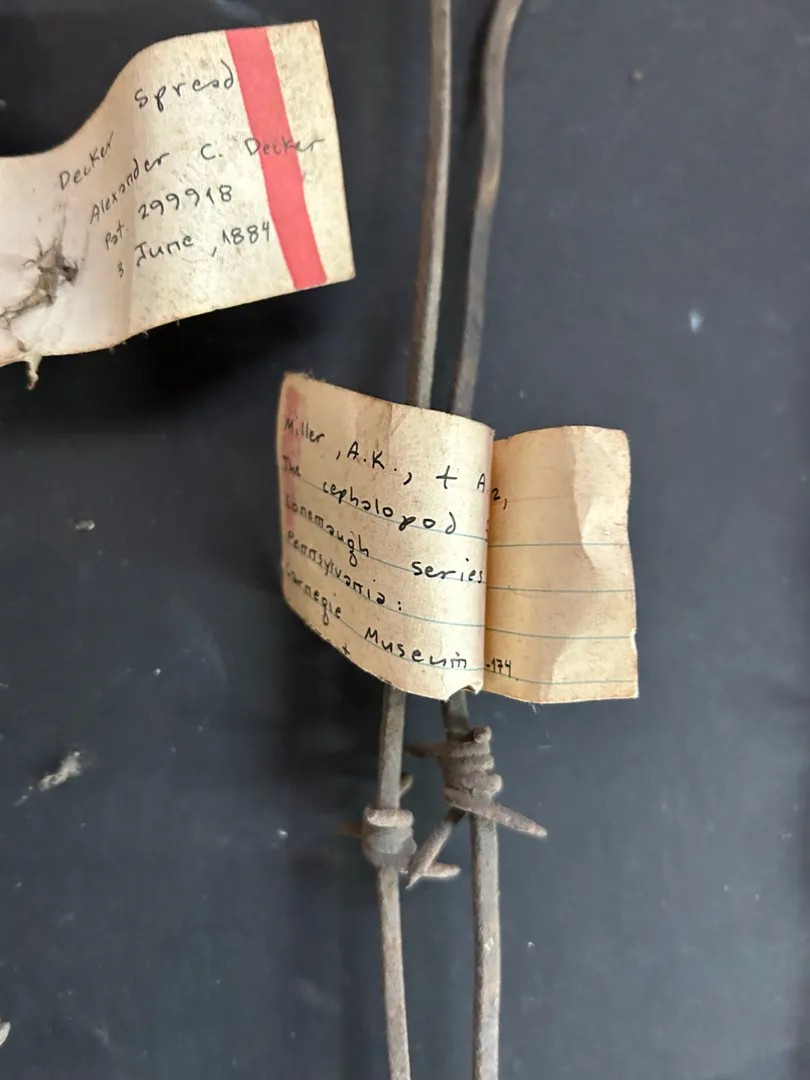 Decker Spread
Alexander C. Decker
Pat. 299918
3 June, 1884
Miller, A.K., + A
2,
The cephalopod
Conemaugh series
Pennsylvania:
Carnegie Museum
-174.